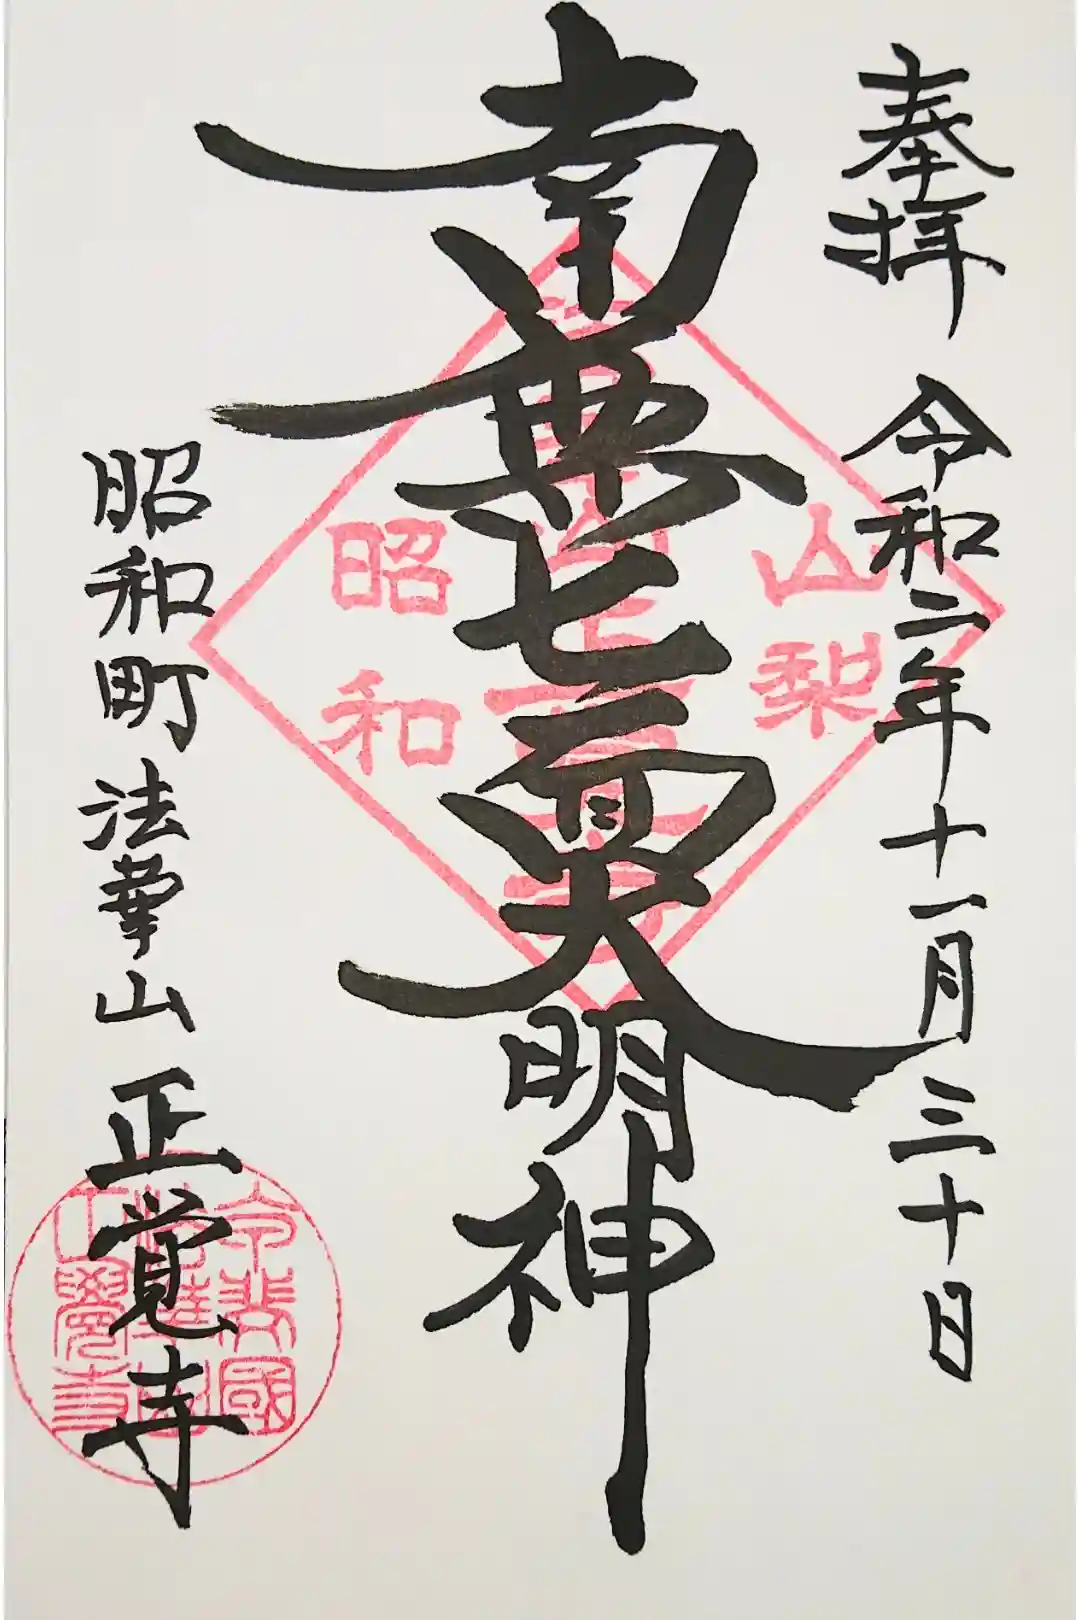 奉拝 令和二年十一月三十日
南無七面大明神
昭和町 法華山 正覚寺
山梨
昭和
斐國
法華山
正覺寺